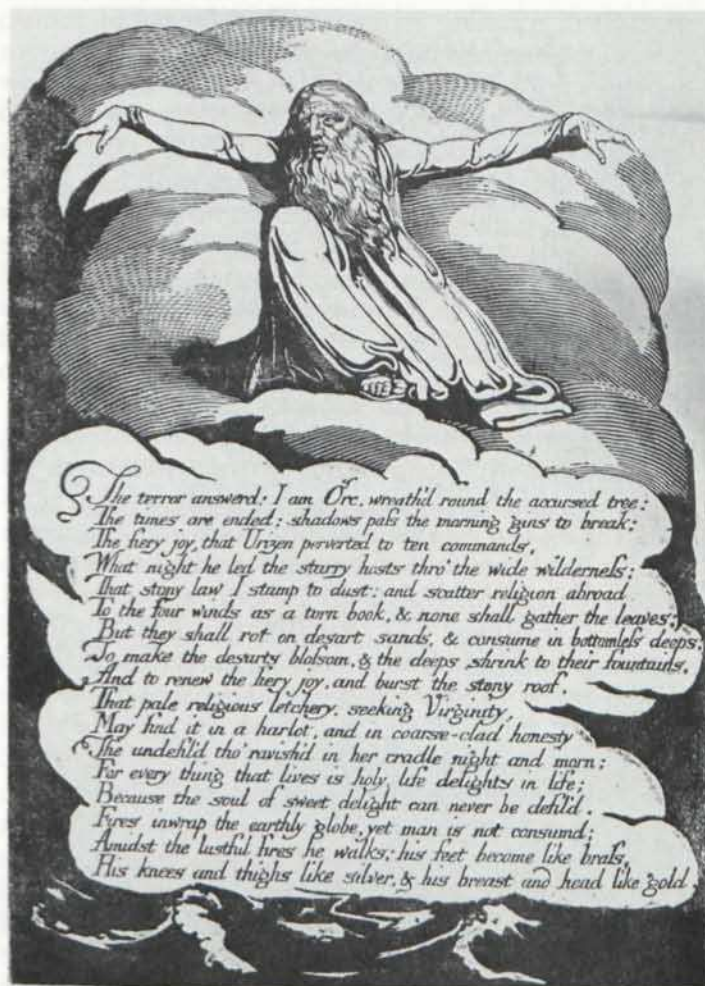 The terror answerd: I am Orc, wreath'd round the accursed tree:
The times are ended; shadows pass the morning gins to break;
The fiery joy, that Urizen perverted to ten commands,
What night he led the starry hosts thro' the wide wilderness:
That stony law I stamp to dust: and scatter religion abroad
To the four winds as a torn book, & none shall gather the leaves;
But they shall rot on desart sands, & consume in bottomless deeps;
To make the desarts blossom, & the deeps shrink to their fountains,
And to renew the fiery joy, and burst the stony roof.
That pale religious letchery, seeking Virginity,
May find it in a harlot, and in coarse-clad honesty
The undefil'd tho' ravish'd in her cradle night and morn:
For every thing that lives is holy, life delights in life;
Because the soul of sweet delight can never be defil'd.
Fires inwrap the earthly globe, yet man is not consumd;
Amidst the lustful fires he walks: his feet become like brass,
His knees and thighs like silver, & his breast and head like gold.